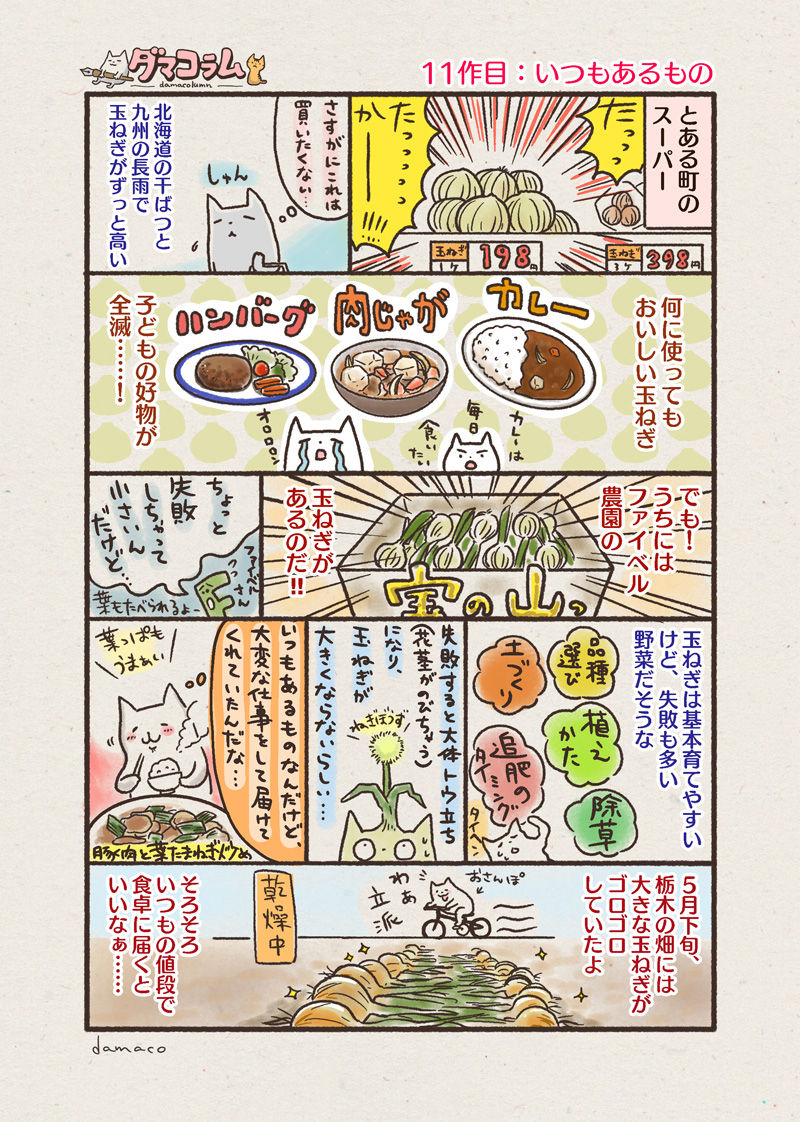 ダマコラム
damacolumn
11作目：いつもあるもの
とある町の
スーパー
たっっっ
たっっっっっ
かーーー!!!!
玉ねぎ
1ヶ
198円
玉ねぎ
3ヶ
398円
さすがにこれは
買いたくない…
しゅん
北海道の干ばつと
九州の長雨で
玉ねぎがずっと高い
何に使っても
おいしい玉ねぎ
カレー
肉じゃが
ハンバーグ
カレーは
毎日
食いたい
オロロロン
子どもの好物が
全滅……！
でも！
うちには
ファイベル
農園の
玉ねぎが
あるのだ!!
宝の山っ
ちょっと
失敗
しちゃって
小さいん
だけど…
ファイベル
さん
葉もたべられるよー
玉ねぎは基本育てやすい
けど、失敗も多い
野菜だそうな
品種
選び
土づくり
植え
かた
追肥の
タイミング
除草
タイヘン
失敗すると大体トウ立ち
(花茎がのびちゃう)
になり、
玉ねぎが
大きくならないらしい…
ねぎぼうず
いつもあるものなんだけど、
大変な仕事をして届けて
くれていたんだな…
葉っぱも
うまぁい
豚肉と葉たまねぎ炒め
5月下旬、
栃木の畑には
大きな玉ねぎが
ゴロゴロ
していたよ
おさんぽ
わぁ
立派
乾燥中
そろそろ
いつもの値段で
食卓に届くと
いいなぁ……
damaco